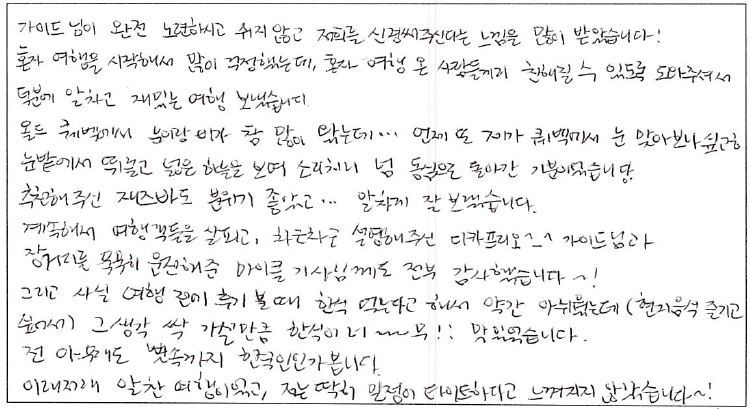 가이드님이 완전 노련하시고 쉬지 않고 저희를 신경써주신다는 느낌을 많이 받았습니다!
혼자 여행을 시작해서 많이 걱정했는데, 혼자 여행 온 사람들끼리 친해질 수 있도록 도와주셔서
덕분에 알차고 재밌는 여행 보냈습니다.
올드 퀘벡에서 눈이랑 비가 참 많이 왔는데... 언제 또 제가 퀘백에서 눈 맞아보나 싶고
눈밭에서 뛰놀고 넓은 하늘을 보며 소리치니 넘 동심으로 돌아간 기분이었습니당
추천해주신 재즈바도 분위기 좋았고... 알차게 잘 보냈습니다.
계속해서 여행객들을 살피고, 차근차근 설명해주신 디카프리오^_^ 가이드님과
장거리를 묵묵히 운전해준 마이클 기사님께도 전부 감사했습니다~!
그리고 사실 여행 전에 후기 볼 때 한식 먹는다고 해서 약간 아쉬웠는데 (현지음식 즐기고
싶어서) 그 생각 싹 가실만큼 한식이 너~~무!! 맛있었습니다.
전 아무래도 뼛속까지 한국인인가봅니다.
이래저래 알찬 여행이었고, 저는 딱히 일정이 타이트하다고 느껴지지 않았습니다~!